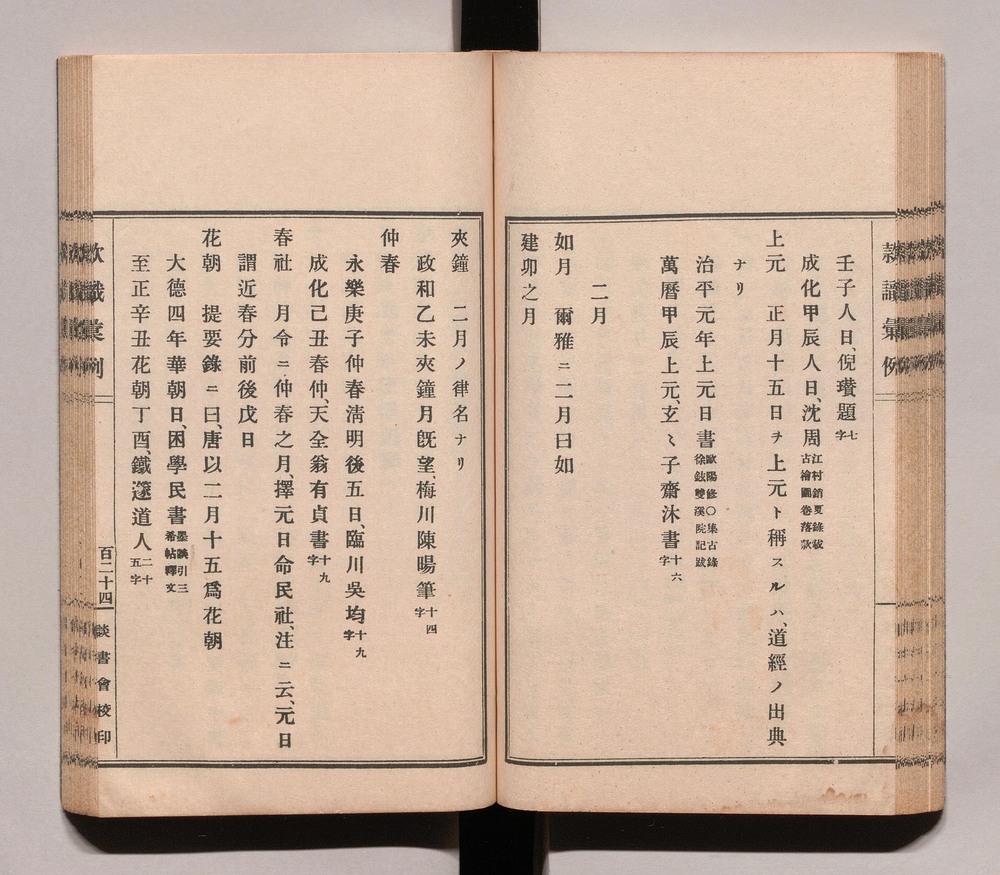 壬子人日、倪瓚題七字
成化甲辰人日、沈周江村銷夏錄載古檜圖卷落款
上元　正月十五日ヲ上元ト稱スルハ、道經ノ出典
ナリ
治平元年上元日書歐陽修〇集古錄徐鉉雙溪院記跋
萬曆甲辰上元、玄〻子齋沐書十六字
二月
如月　爾雅ニ二月曰如
建卯之月
夾鐘　二月ノ律名ナリ
政和乙未夾鐘月旣望、梅川陳暘筆十四字
仲春
永樂庚子仲春淸明後五日、臨川吳均十九字
成化己丑春仲、天全翁有貞書十九字
春社　月令ニ仲春之月、擇元日命民社、注ニ云、元日
謂近春分前後戊日
花朝　提要錄ニ曰、唐以二月十五爲花朝
大德四年華朝日、困學民書墨談引三希帖釋文
至正辛丑花朝丁酉、鐵篴道人二十五字
款識彙例
百二十四
談書會校印